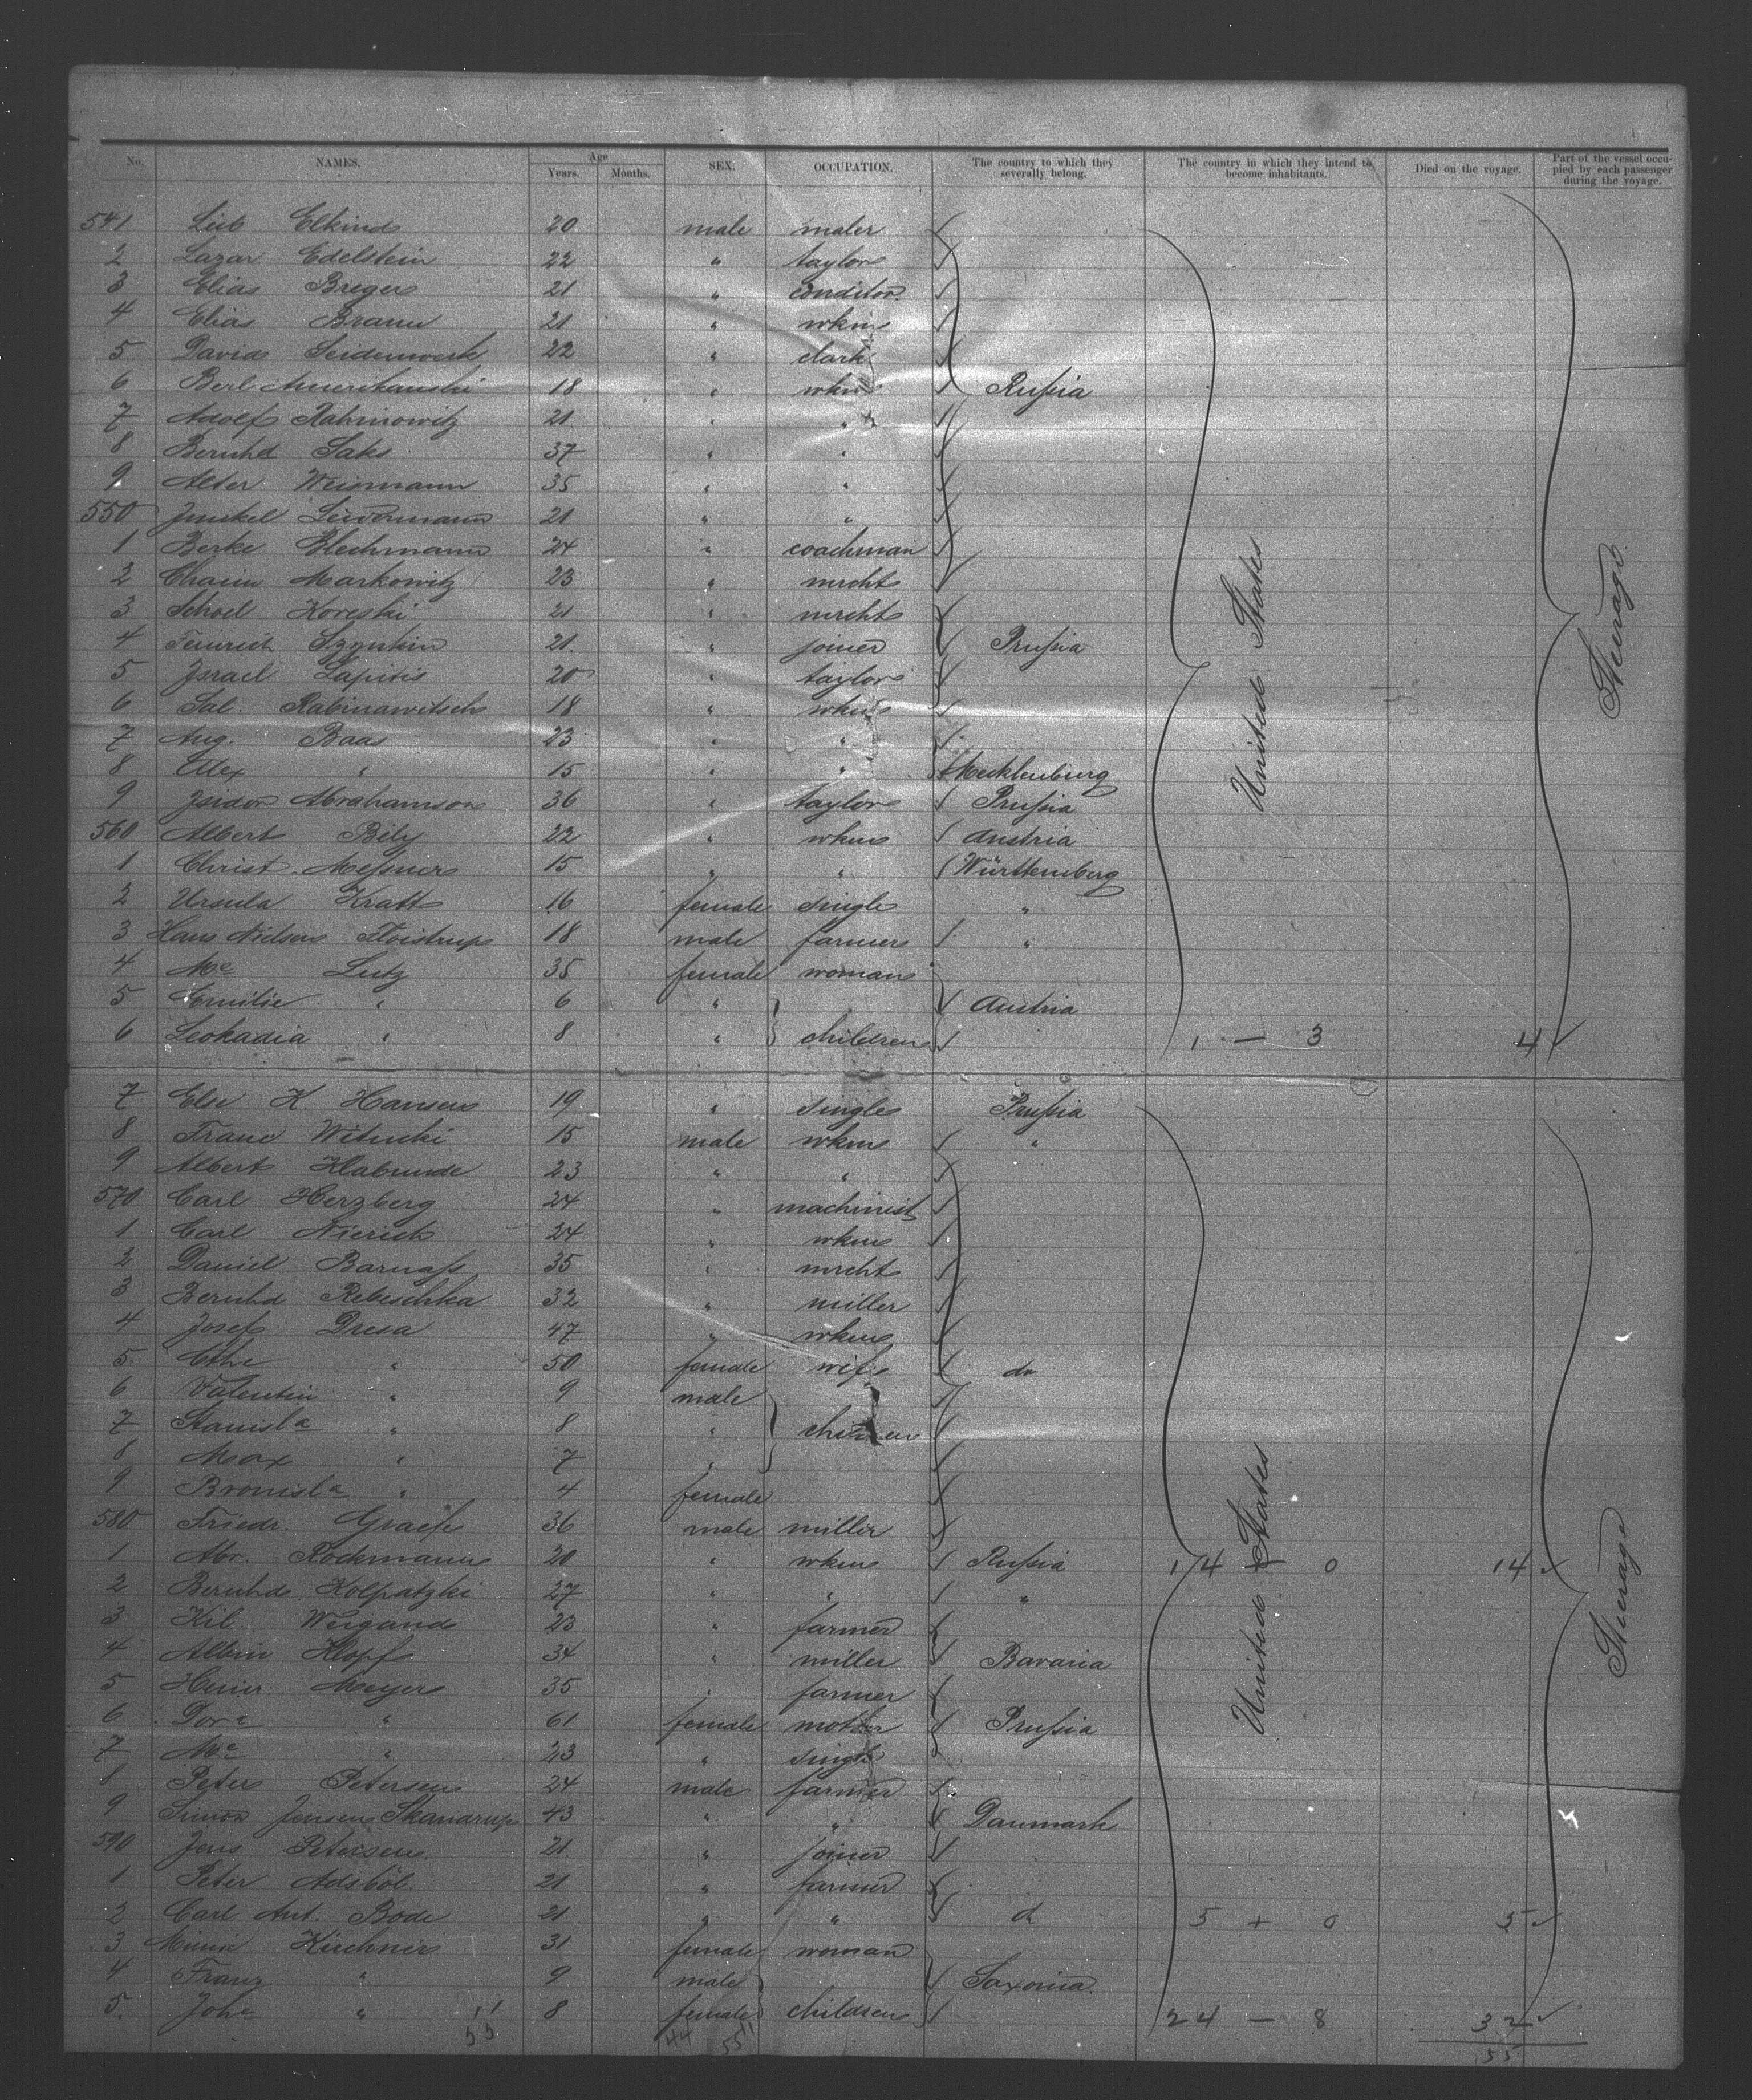 No. NAMES. Age Years. Months. SEX. OCCUPATION. The country to which they severally belong. The country in which they intend to become inhabitants. Died on the voyage. Part of the vessel occupied by each passenger during the voyage.
541 Leib Elkind 20 male maler
2 Lazar Edelstein 22 " taylor
3 Elias Breger 21 " conditor
4 Elias Braun 21 " wkm
5 David Seidenwerk 22 " clark
6 Berl Amerikanski 18 " wkm Rußia
7 Adolf Rahinowitz 21 " "
8 Bernhd Saks 37 " "
9 Alter Weinmann 35 " "
550 Jankel 21 " "
1 Berke Blechmann 24 " coachman
2 Chaim Markowitz 23 " mrcht
3 Schoel Koreski 21 " mrcht
4 21 " joiner Prußia
5 Israel Lapitis 20 " taylor
6 Sal. Rabinawitsch 18 " wkm
7 Aug. Baas 23 " "
8 Alex " 15 " " Mecklenburg
9 Isidor Abrahamson 36 " taylor Prußia
560 Albert Bily 22 " wkm Austria
1 Christ. Meßner 15 " " Württemberg
2 Ursula Kratt 16 female single "
3 Hans Nielsen Floistrup 18 male farmer "
4 Me Lutz 35 female woman
5 Emilie " 6 " Austria
6 Leokadia " 8 " children 1 — 3 4
United States
Steerage
7 Else K. Hansen 19 " single Prußia
8 Franc Witucki 15 male wkm "
9 Albert Klabunde 23 " "
570 Carl Herzberg 24 " machinist
1 Carl Nierich 24 " wkm
2 Daniel Barnaß 35 " mrcht
3 Bernhd Rebeschka 32 " miller
4 Josef Dresa 47 " wkm
5 Cthe " 50 female wife do
6 Valentin " 9 male
7 Stanisla " 8 " children
8 Max " 7 "
9 Bronisla " 4 female
580 Friedr. Graefe 36 male miller
1 Abr. Rockmann 20 " wkm Rußia 14 + 0 14
2 Bernhd Kolpatzki 27 " " "
3 Kil. Weigand 23 " farmer
4 Albin Klopf 34 " miller Bavaria
5 Heinr. Meyer 35 " farmer
6 Dora " 61 female mother Prußia
7 Me " 23 " single
8 Peter Petersen 24 male farmer
9 Simon Jensen Skandrup 43 " " Danmark
590 Jens Petersen 21 " joiner
1 Peter Adsböl 21 " farmer
2 Carl Ant. Bode 21 " " d 5 + 0 5
3 Minni Kirchner 31 female woman
4 Franz " 9 male Saxonia
5. Joha " 8 female children 24 — 8 32
United States
Steerage
55 44 55 55